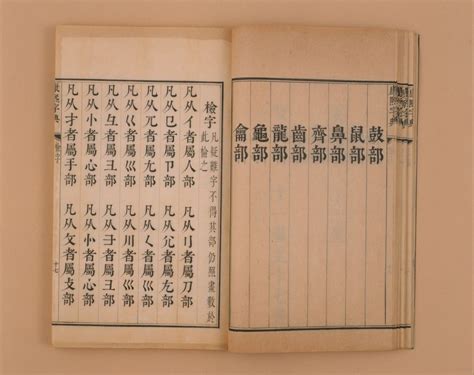 鼓部
鼠部
鼻部
齊部
齒部
龍部
龜部
龠部
檢字 凡疑難字不得其部仍照畫數於此檢之
凡从亻者屬人部 凡从刂者屬刀部
凡从㔾者屬卩部 凡从尣者屬尢部
凡从兀者屬尢部 凡从𡿨者屬巛部
凡从巜者屬巛部 凡从川者屬巛部
凡从彑者屬彐部 凡从者屬彐部
凡从忄者屬心部 凡从㣺者屬心部
凡从扌者屬手部 凡从攵者屬攴部
康熙字典 檢字